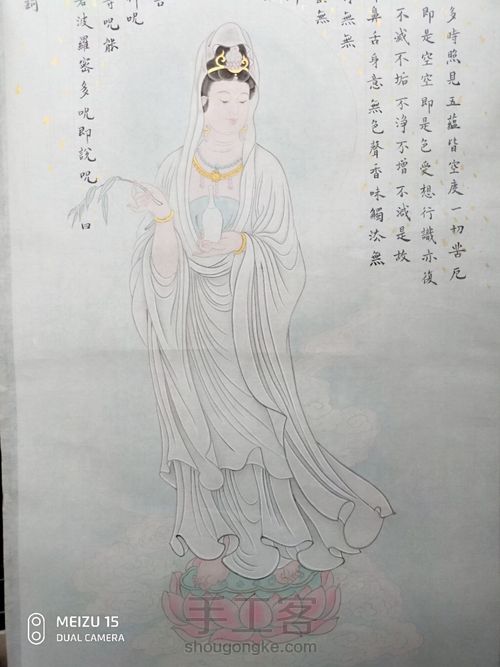 多時照見五蘊皆空度一切苦厄
即是空空即是色受想行識亦復
不滅不垢不淨不增不減是故
鼻舌身意無色聲香味觸法無
無無
無
即呪
呪能
若波羅蜜多呪即說呪曰
MEIZU 15
DUAL CAMERA
手工客
shougongke.com